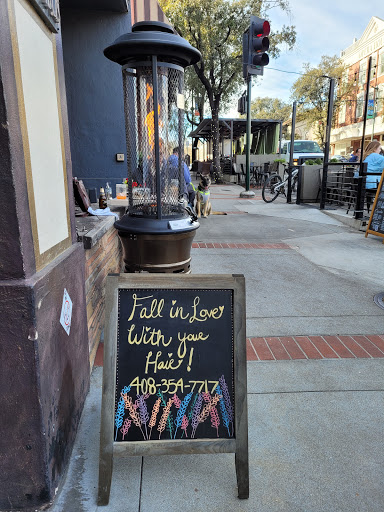 Fall in Love
With your
Hair!
408-354-7717